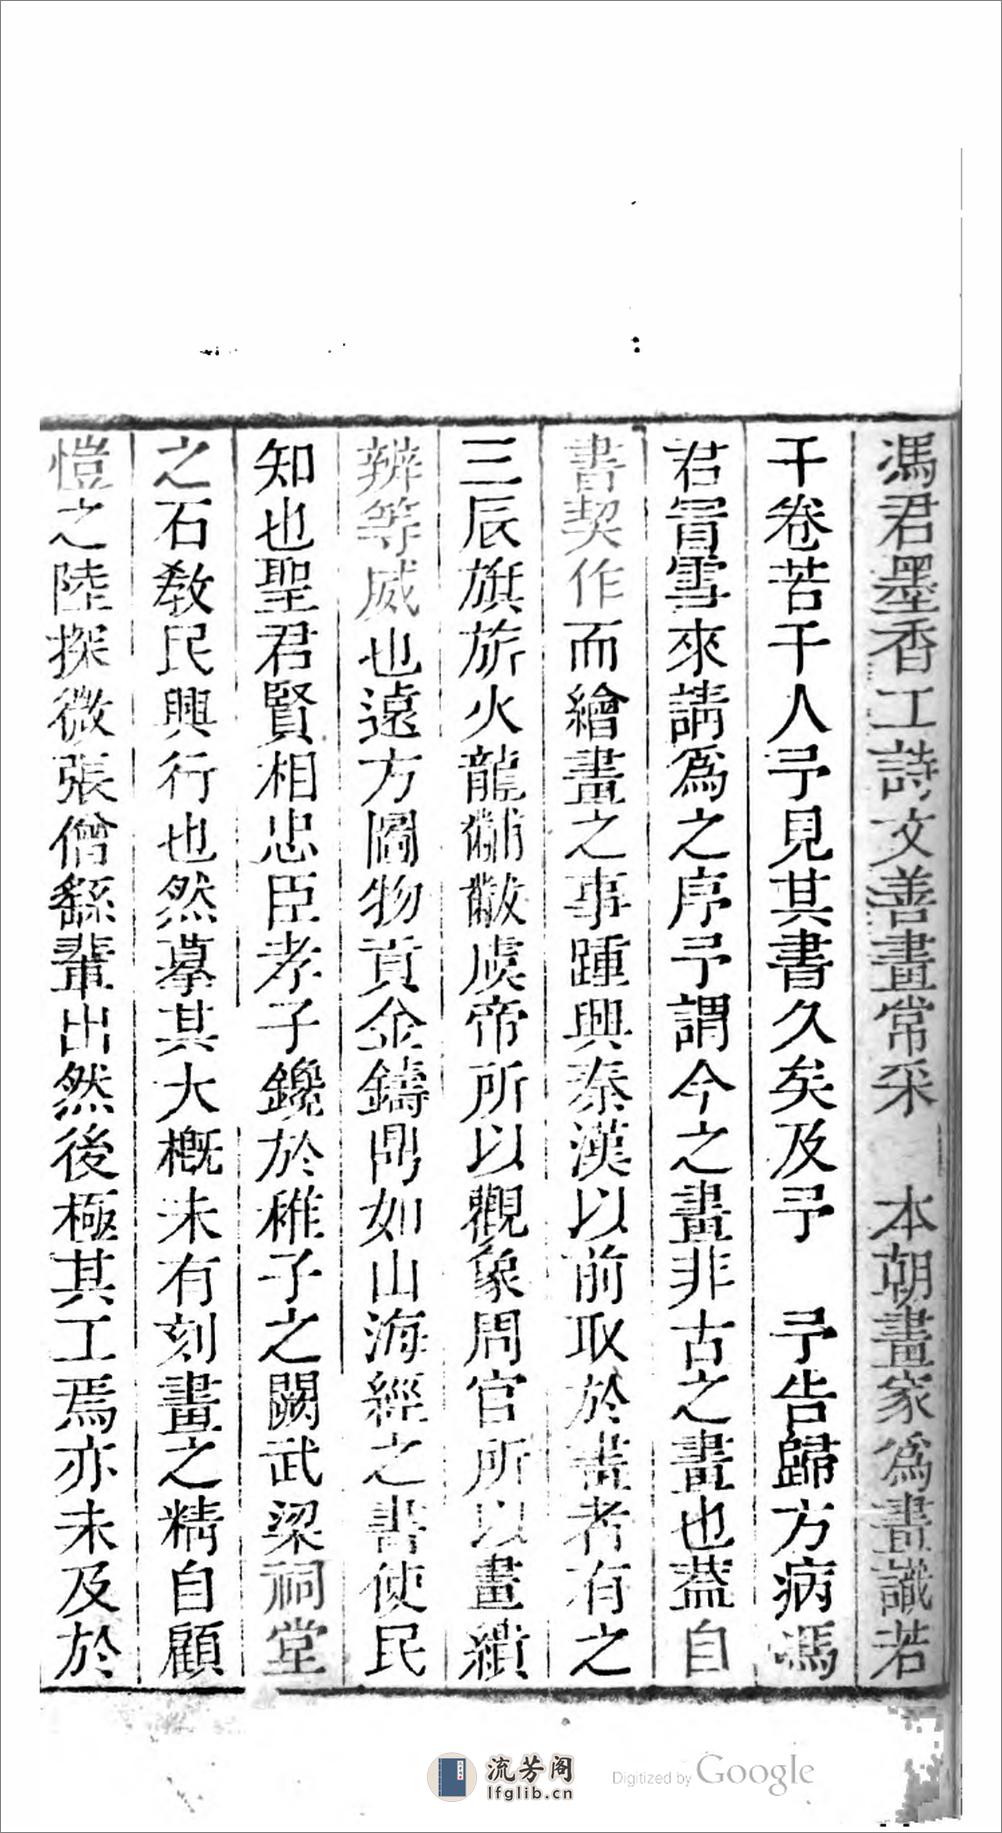 馮君墨香工詩文善畫常采　本朝畫家爲畫識若
干卷若干人予見其書久矣及予　予告歸方病馮
君冒雪來請爲之序予謂今之畫非古之畫也蓋自
書契作而繪畫之事踵興秦漢以前取於畫者有之
三辰旗旂火龍黼黻虞帝所以觀象周官所以畫繢
辨等威也遠方圖物貢金鑄鼎如山海經之書使民
知也聖君賢相忠臣孝子鑱於稚子之闕武梁祠堂
之石敎民興行也然摹其大槪未有刻畫之精自顧
愷之陸探微張僧繇輩出然後極其工焉亦未及於
流芳阁
lfglib.cn
Digitized by Google